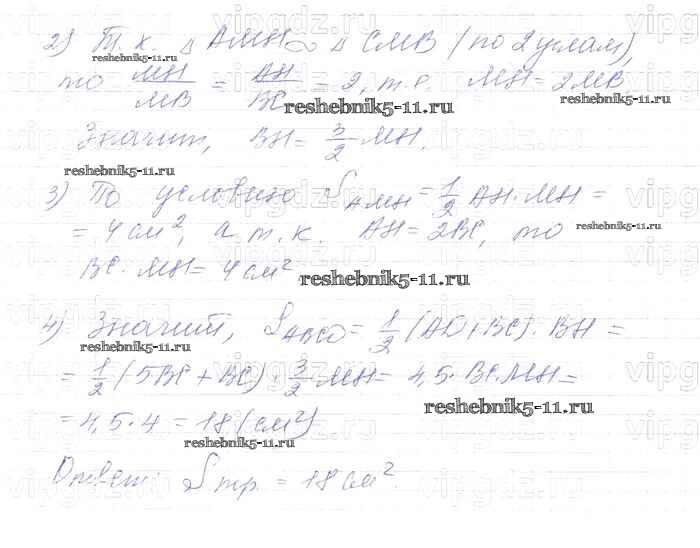 2) Т. к. △ AMH ∾ △ CMB (по 2 углам),
то MH/MB = AH/BC = 2, т. е. MH = 2MB
Значит, BH = 3/2 MH.
3) По условию S_AMH = 1/2 AH · MH =
= 4 см², а т. к. AH = 2BC, то
BC · MH = 4 см²
4) Значит, S_ABCD = 1/2 (AD + BC) · BH =
= 1/2 (5BC + BC) · 3/2 MH = 4,5 · BC · MH =
= 4,5 · 4 = 18 (см²)
Ответ: S тр. = 18 см².
reshebnik5-11.ru
reshebnik5-11.ru
reshebnik5-11.ru
reshebnik5-11.ru
reshebnik5-11.ru
reshebnik5-11.ru
reshebnik5-11.ru
reshebnik5-11.ru
reshebnik5-11.ru